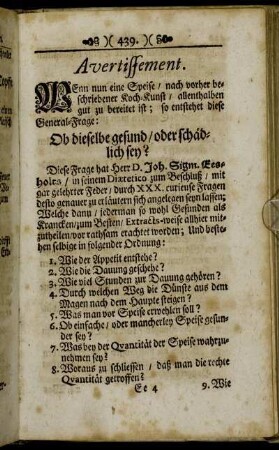 )( 439. )(
Avertissement.
WEnn nun eine Speise / nach vorher be-
schriebener Koch-Kunst / allenthalben
gut zu bereitet ist; so entstehet diese
General-Frage:
Ob dieselbe gesund / oder schäd-
lich sey?
Diese Frage hat Herr D. Joh. Sigm. Els-
holtz / in seinem Diætetico zum Beschluß / mit
gar gelehrter Feder / durch XXX. curieuse Fragen
desto genauer zu erläutern sich angelegen seyn lassen;
Welche dann / jederman so wohl Gesunden als
Krancken / zum Besten / Extracts-weise allhier mit-
zutheilen / vor rathsam erachtet worden; Und beste-
hen selbige in folgender Ordnung:
1. Wie der Appetit entstehe?
2. Wie die Dauung geschehe?
3. Wie viel Stunden zur Dauung gehören?
4. Durch welchen Weg die Dünste aus dem
Magen nach dem Haupte steigen?
5. Was man vor Speise erwehlen soll?
6. Ob einfache / oder mancherley Speise gesun-
der sey?
7. Was bey der Qvantität der Speise wahrzu-
nehmen sey?
8. Woraus zu schliessen / daß man die rechte
Qvantität getroffen?
Ee 4 9. Wie